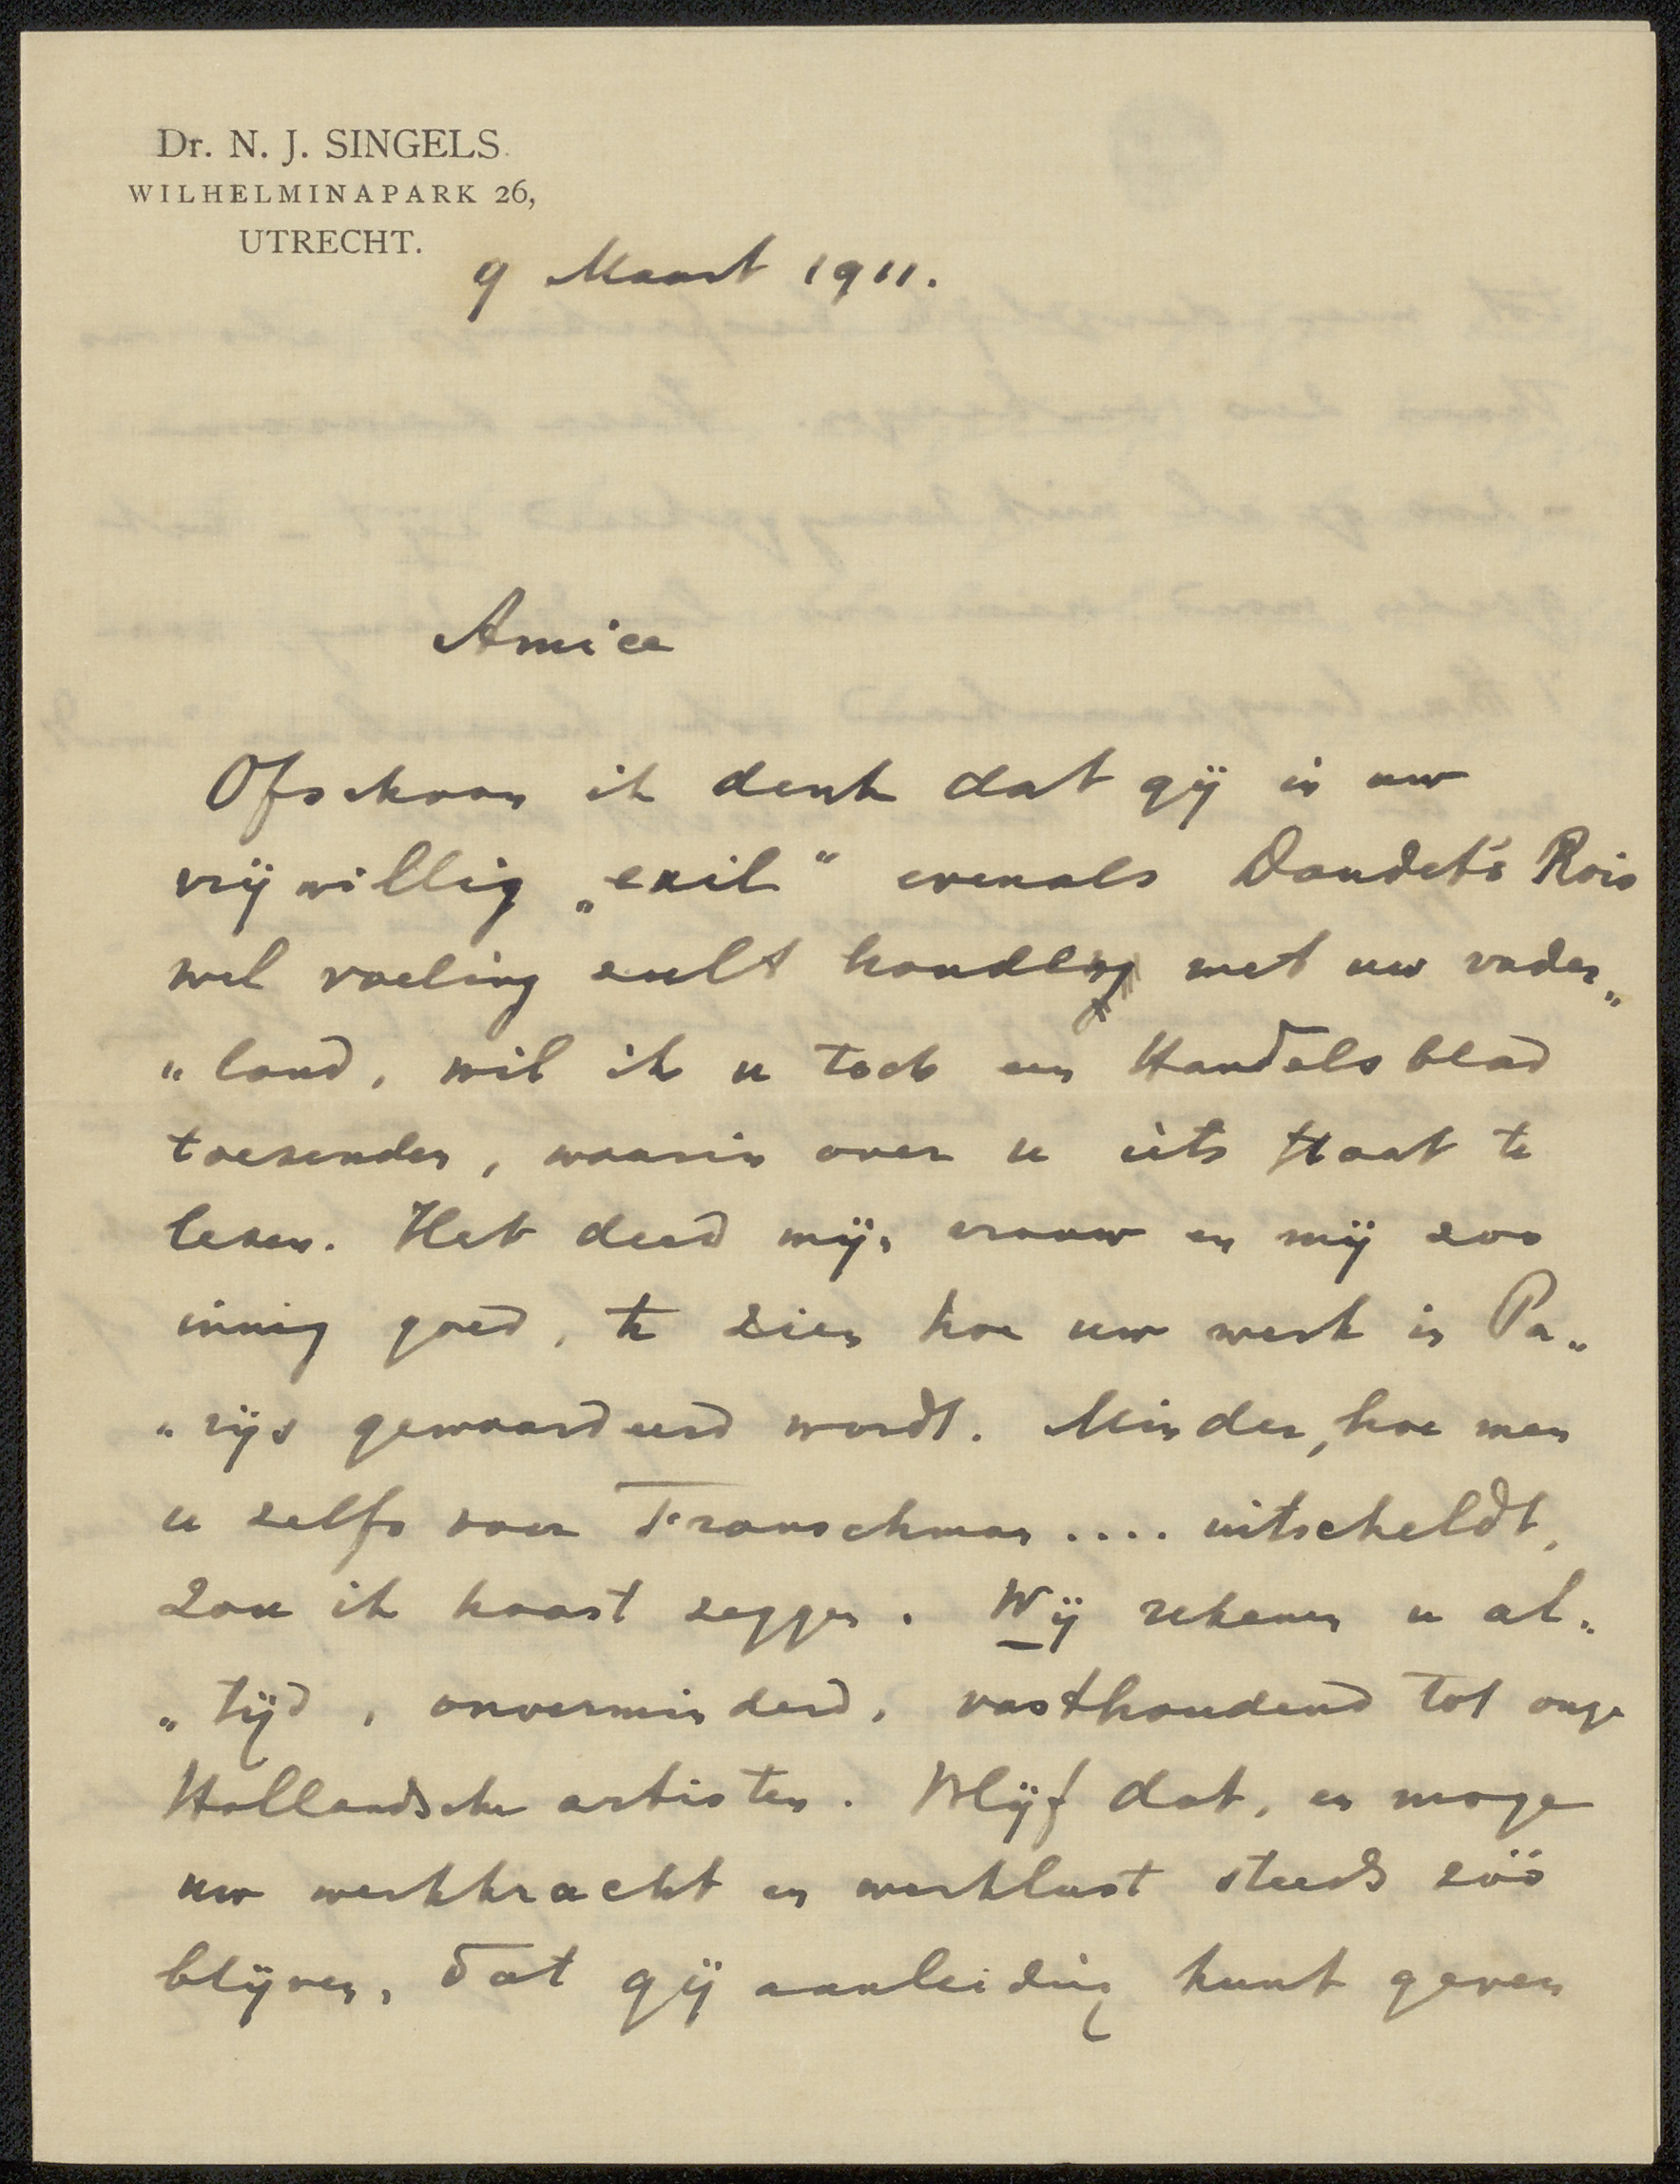 Dr. N. J. SINGELS.
WILHELMINAPARK 26,
UTRECHT.
9 Maart 1911.
Amice
Ofschoon ik denk dat gij in uw
vrijwillig „exil“ evenals Daudet's Rois
wel voeling zult houden met uw vader„
„land, wil ik u toch een Handelsblad
toezenden, waarin over u iets staat te
lezen. Het deed mijn vrouw en mij zoo
innig goed, te zien hoe uw werk in Pa„
„rijs gewaardeerd wordt. Minder, hoe men
u zelfs voor Franschman .... uitscheldt,
zou ik haast zeggen. Wij rekenen u al„
„tijd, onverminderd, vasthoudend tot onze
Hollandsche artisten. Blijf dat, en moge
uw werkkracht en werklust steeds zóó
blijven, dat gij aanleiding kunt geven